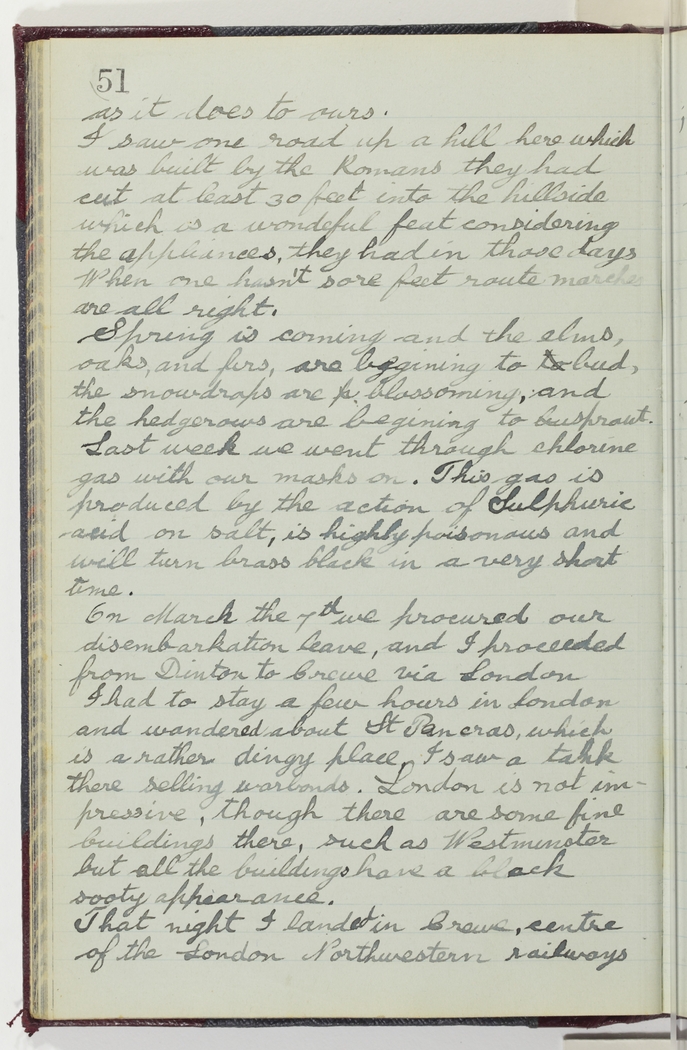 51
as it does to ours.
I saw one road up a hill here which
was built by the Romans they had
cut at least 30 feet into the hillside
which is a wondeful feat considering
the appliences, they had in those days
When one hasn't sore feet route marches
are all right.
Spring is coming and the elms,
oaks, and firs, are beggining to to bud,
the snowdrops are p. blossoming, and
the hedgerows are begining to busprout.
Last week we went through chlorine
gas with our masks on. This gas is
produced by the action of Sulphuric
acid on salt, is highly poisonous and
will turn brass black in a very short
time.
On March the 7th we procured our
disembarkation leave, and I proceeded
from Dinton to Crewe via London
I had to stay a few hours in London
and wandered about St Pancras, which
is a rather dingy place, I saw a tank
there selling warbonds. London is not im-
pressive, though there are some fine
buildings there, such as Westminster
but all the buildings have a black
sooty appearance.
That night I landed in Crewe, centre
of the London Northwestern railways